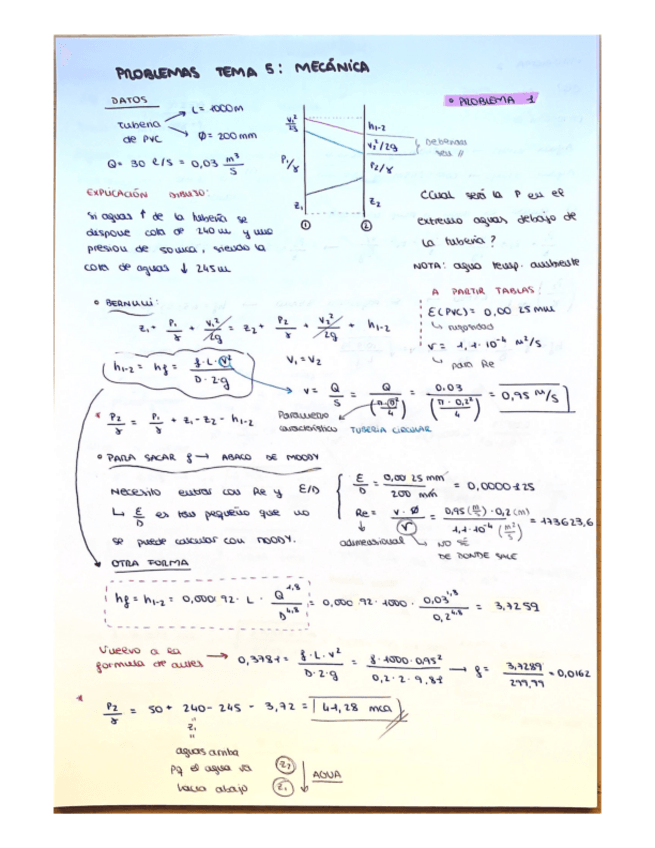 PROBLEMAS TEMA 5: MECÁNICA
DATOS
• PROBLEMA 1
Tubería de PVC
L = 1000m
Ø = 200 mm
Q = 30 l/s = 0,03 m³/s
V₁²/2g
P₁/γ
Z₁
①
h₁₋₂
V₂²/2g
P₂/γ
Z₂
②
EXPLICACIÓN DIBUJO:
Si aguas ↑ de la tubería se
dispone cota de 240 m y una
presion de 50 mca, siendo la
cota de aguas ↓ 245 m
¿Cual será la P en el
extremo aguas debajo de
la tubería?
NOTA: agua temp. ambiente
A PARTIR TABLAS:
E(PVC) = 0,0025 mm
↳ rugosidad
ν = 1,1·10⁻⁴ m²/s
↳ para Re
• BERNULLI:
Z₁ + P₁/γ + V₁²/2g = Z₂ + P₂/γ + V₂²/2g + h₁₋₂
h₁₋₂ = hf = f·L·V² / D·2g
V₁ = V₂
→ V = Q/S = Q/(π·Ø²/4) = 0,03/(π·0,2²/4) = 0,95 m/s
TUBERIA CIRCULAR
* P₂/γ = P₁/γ + Z₁ - Z₂ - h₁₋₂
• PARA SACAR f → ABACO DE MOODY
Necesito entrar con Re y E/D
↳ E/D es tan pequeño que no
se puede calcular con MOODY.
E/D = 0,0025 mm / 200 mm = 0,0000125
Re = V·Ø/ν = 0,95 (m/s)·0,2(m) / 1,1·10⁻⁴ (m²/s) = 173623,6
adimensional
↳ NO SÉ
DE DONDE SALE
OTRA FORMA
hf = h₁₋₂ = 0,00092·L·Q^1,8/D^4,8 = 0,00092·1000·0,03^1,8/0,2^4,8 = 3,7259
Vuelvo a la
formula de antes
→ 0,3781 = f·L·V²/D·2·g = f·1000·0,95²/0,2·2·9,81 → f = 3,7289/299,99 = 0,0162
* P₂/γ = 50 + 240 - 245 - 3,72 = 41,28 mca
Z₁
"
aguas arriba
Pq el agua va
hacia abajo
Z₁
AGUA